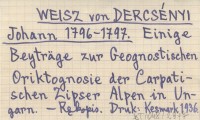 WEISZ von DERCSÉNYI
Johann 1796-1797. Einige
Beyträge zur Geognostischen
Oriktognosie der Carpati-
schen Zipser Alpen in Un-
garn. – Rkopis. Druk: Kesmark 1936